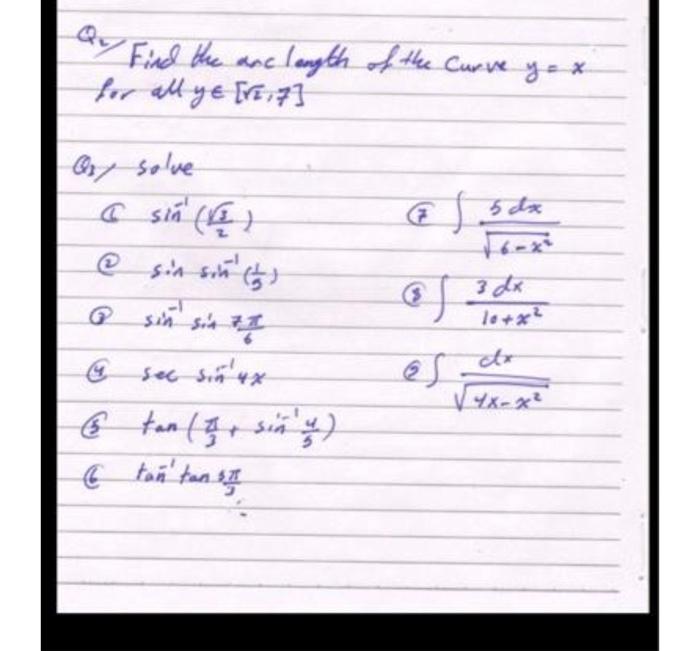 Q2/ Find the arc length of the curve y = x
for all y ∈ [√2, 7]
Q3/ solve
① sin⁻¹ (√3/2)
② sin sin⁻¹ (1/5)
③ sin⁻¹ sin 7π/6
④ sec sin⁻¹ 4x
⑤ tan (π/3 + sin⁻¹ 4/5)
⑥ tan⁻¹ tan 5π/3
⑦ ∫ 5 dx / √(6 - x²)
⑧ ∫ 3 dx / 10 + x²
⑨ ∫ dx / √(4x - x²)